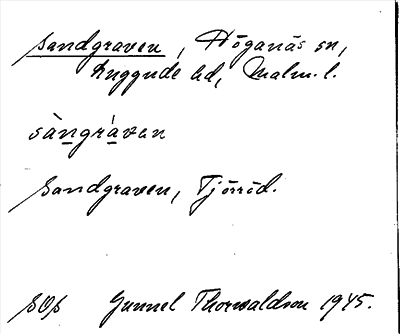 Sandgraven, Höganäs sn,
Luggude hd, Malm. l.
sàngrávan
Sandgraven, Tjörröd.
SOs Gunnel Thorwaldson 1945.